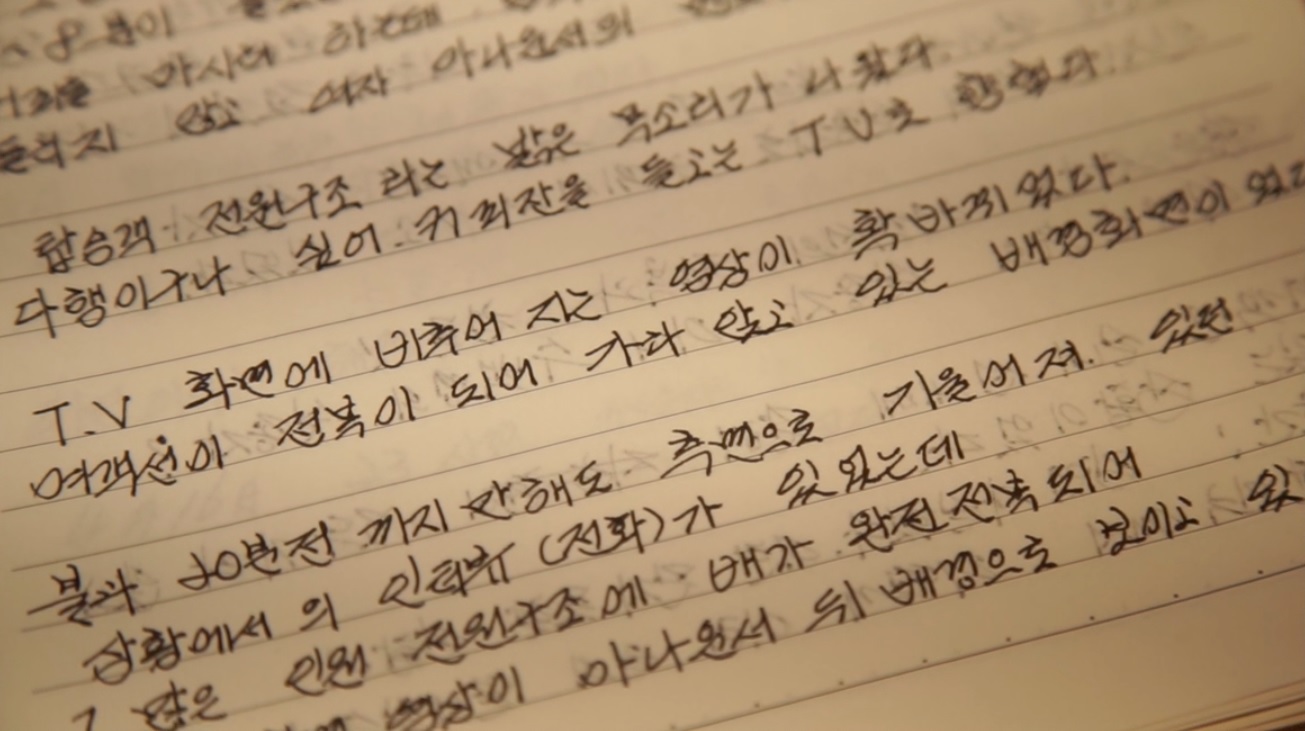 마시며 하는데
들리지 않고 여자 아나운서의
탑승객. 전원구조 라는 밝은 목소리가 나왔다.
다행이구나. 싶어. 커피잔을 들고는 TV로 향했다.
T.V 화면에 비추어 지는 영상이. 확 바뀌었다.
여객선이 전복이 되어 가라 앉고 있는 배경화면이 있었
불과 20분전 까지 만해도 측면으로 기울어져. 있던
상황에서 의 인터뷰 (전화)가 있었는데
그 많은 인원 전원구조에 배가 완전전복되어
영상이 아나운서 뒤 배경으로 보이고 있